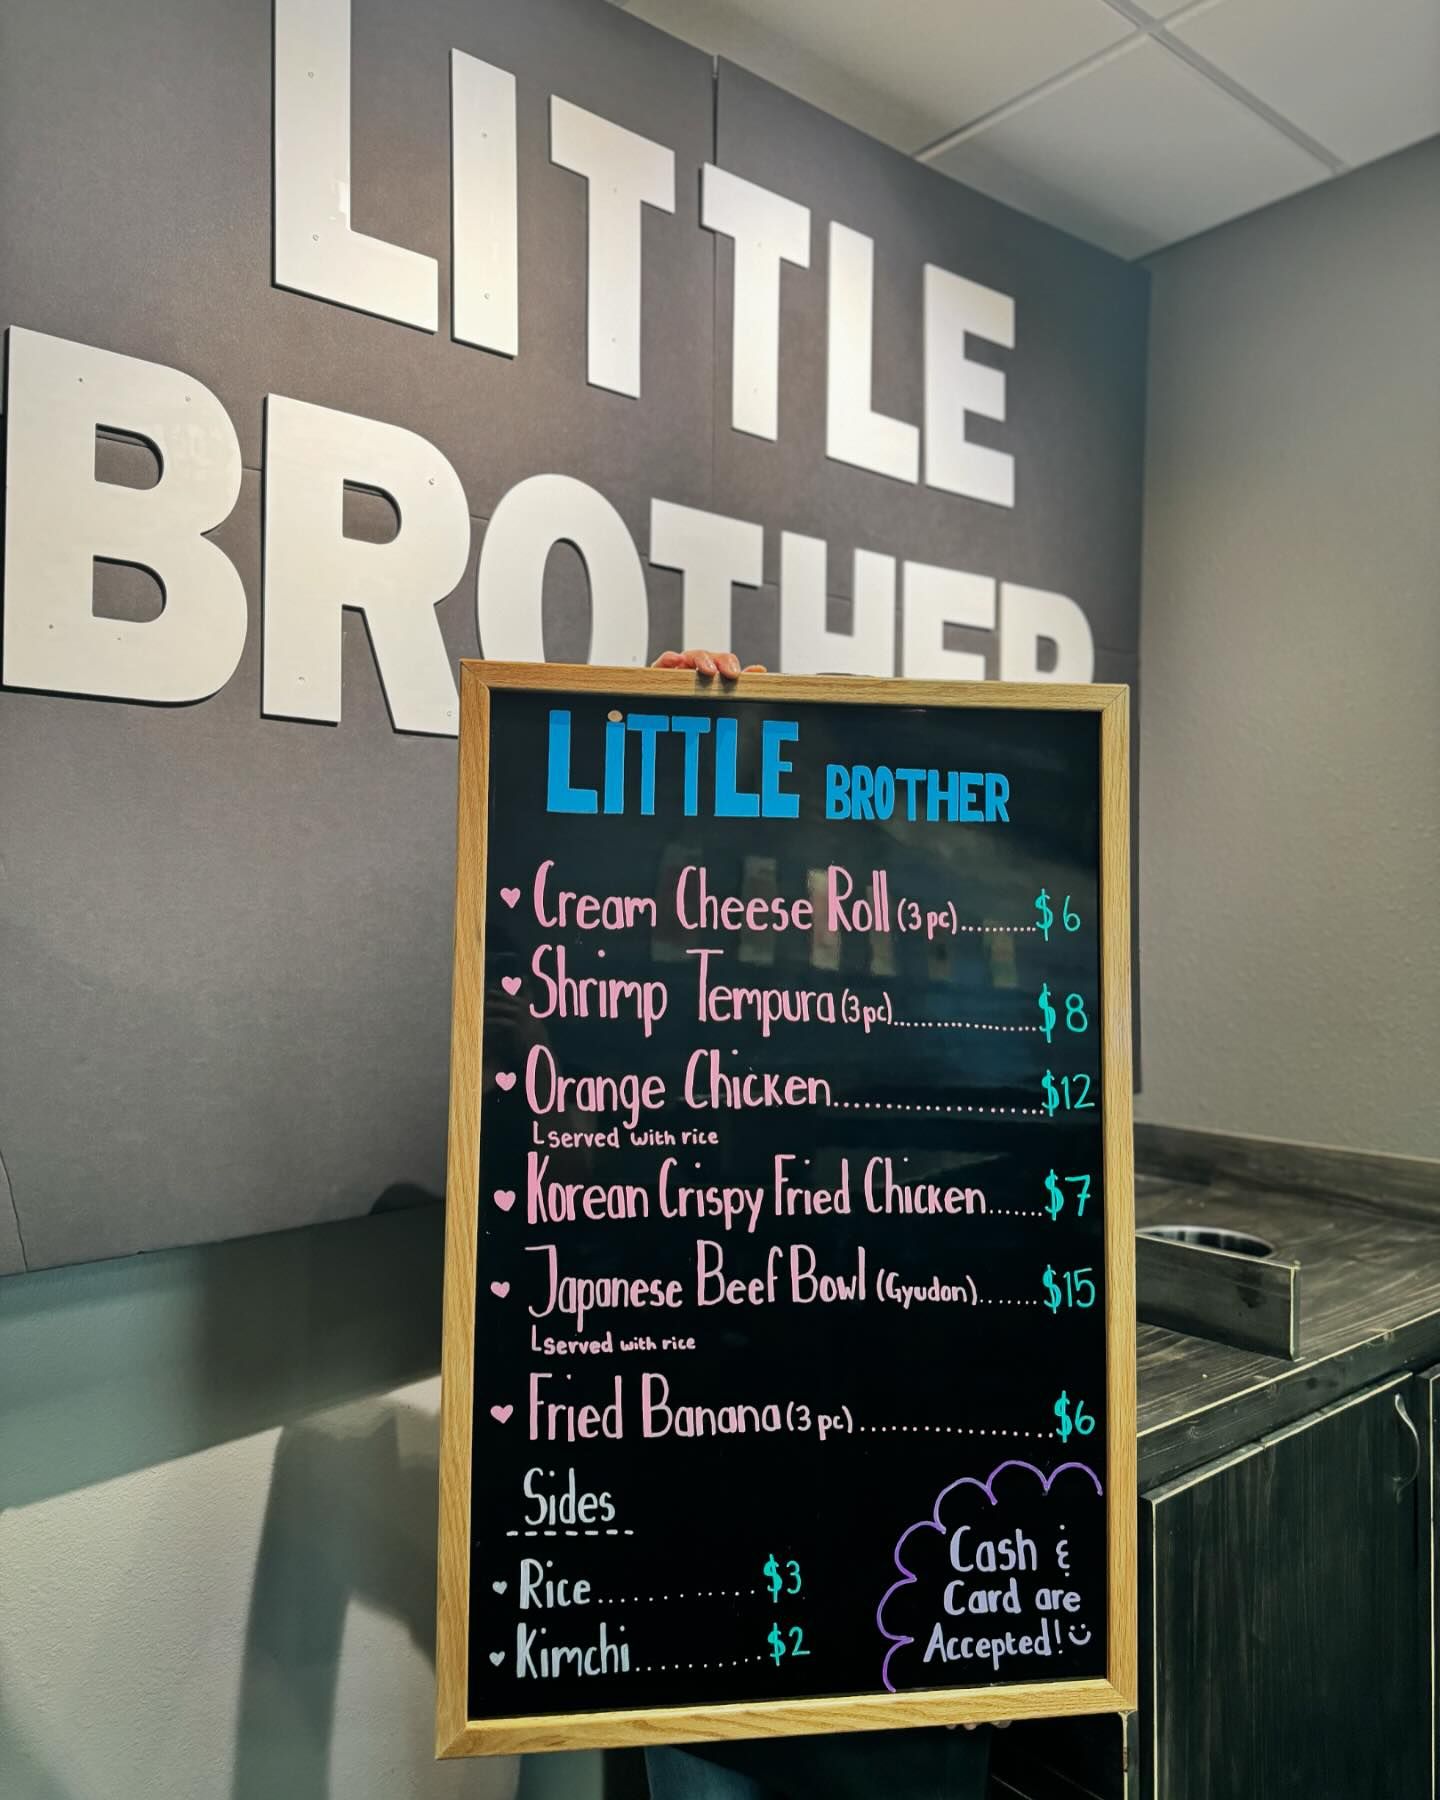 LITTLE
BROTHER
LiTTLE BROTHER
♥ Cream Cheese Roll (3 pc)...........$6
♥ Shrimp Tempura (3 pc)..................$8
♥ Orange Chicken......................$12
L served with rice
♥ Korean Crispy Fried Chicken.......$7
♥ Japanese Beef Bowl (Gyudon).......$15
L served with rice
♥ Fried Banana (3 pc)..................$6
Sides
♥ Rice............$3
♥ Kimchi..........$2
Cash &
Card are
Accepted! ü